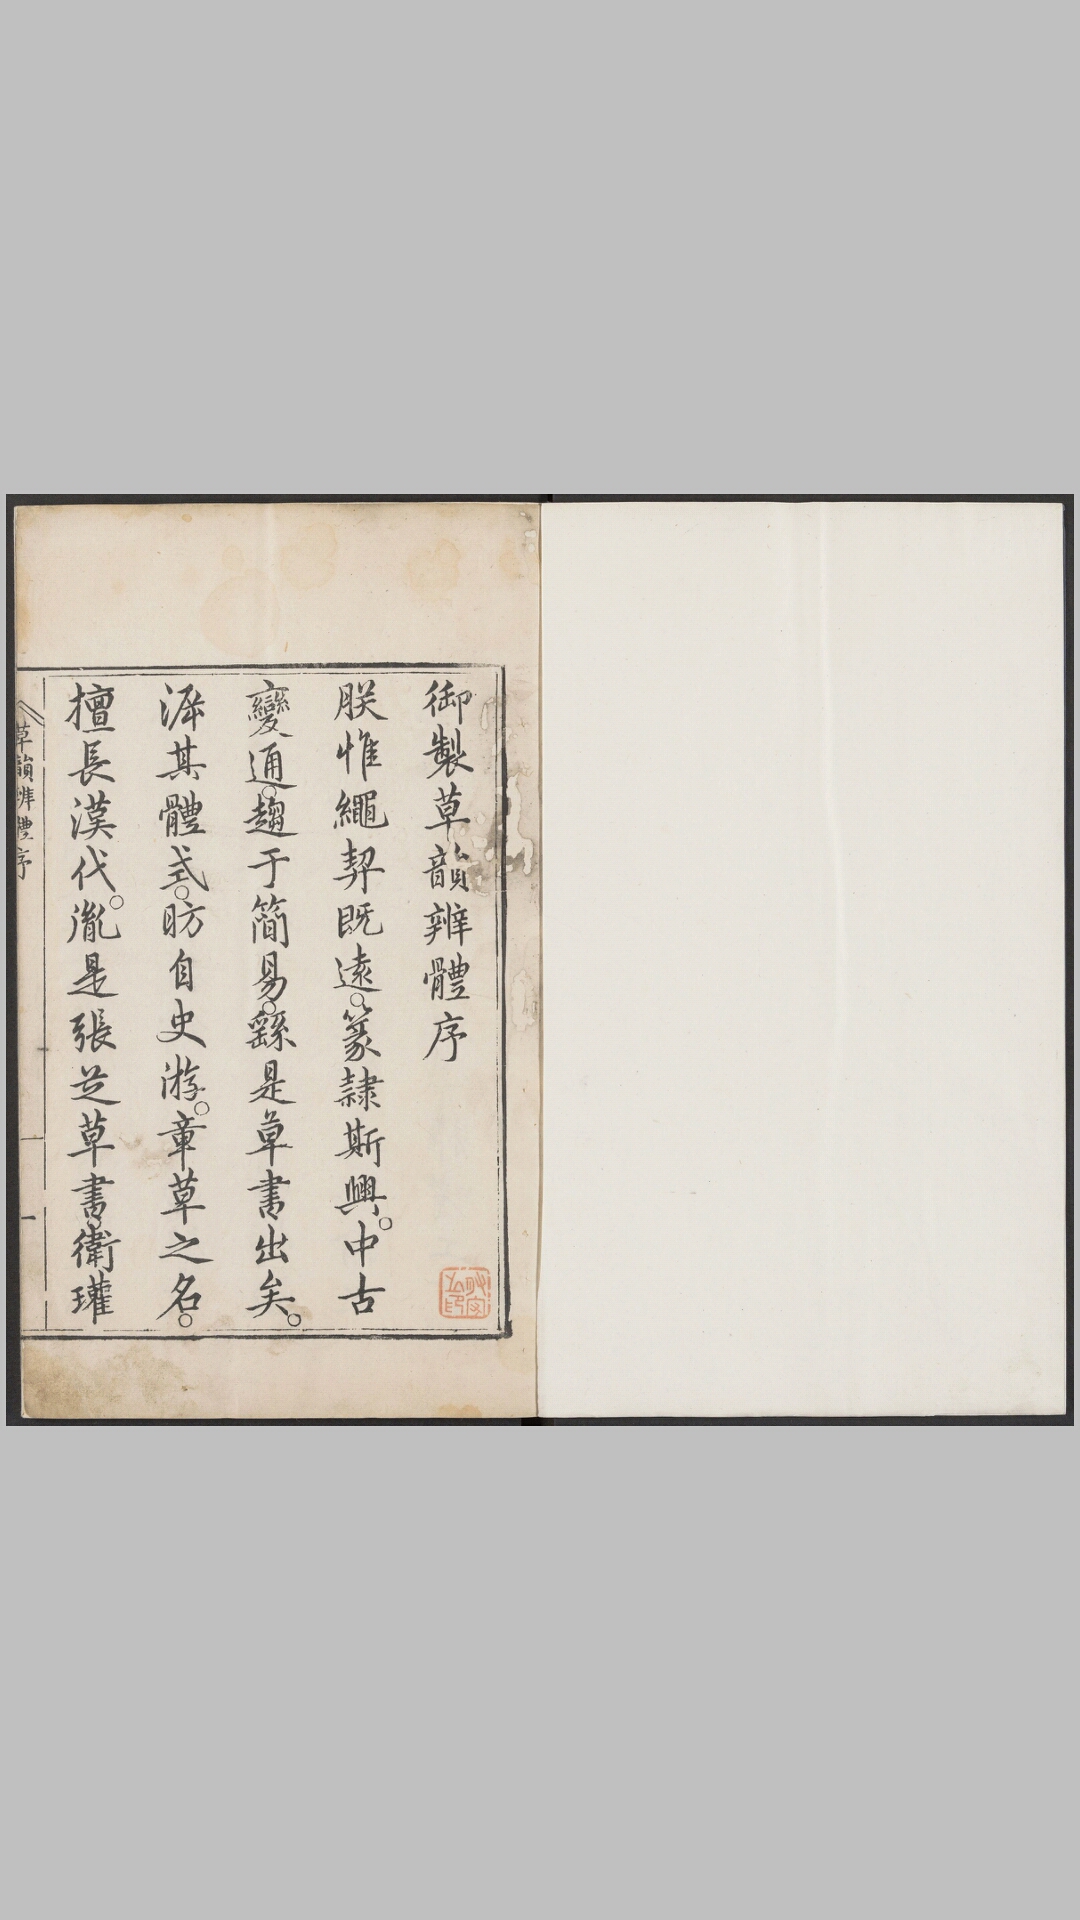 御製草韻辨體序
朕惟繩契既遠。篆隷斯興。中古
變通。趨于簡易。繇是草書出矣。
㴑其體式。昉自史游。章草之名。
擅長漢代。胤是張芝草書。衛瓘
草韻辨體序
一